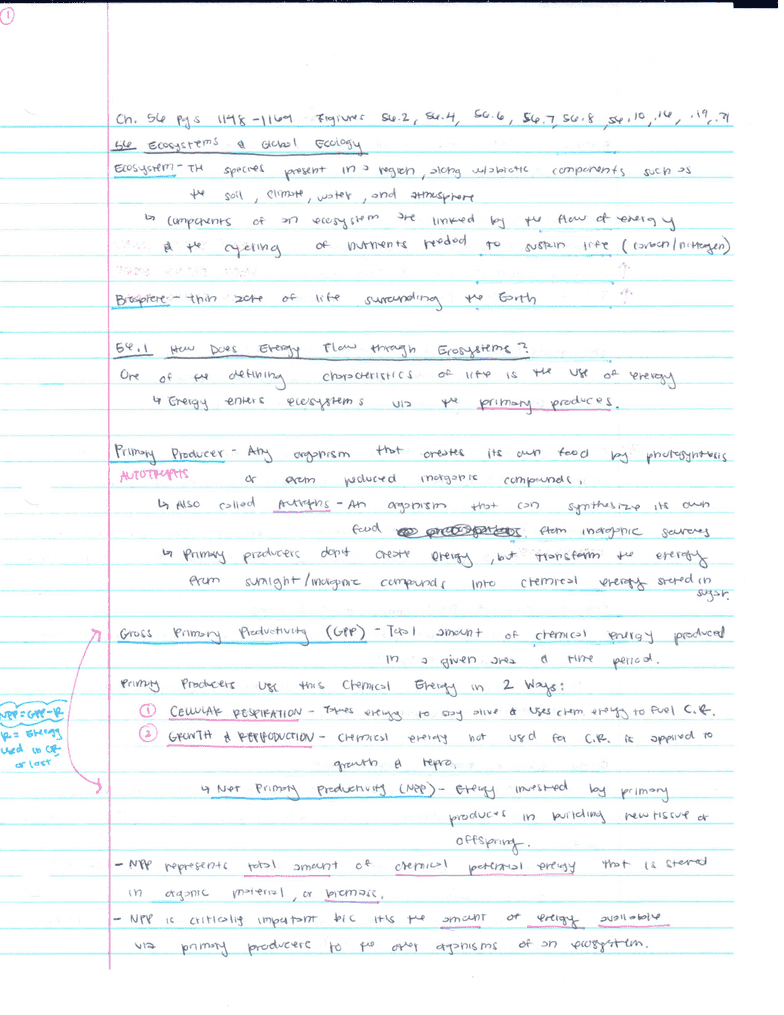 1
Ch. 56 Pgs 1148-1169 Figiures 56.2, 56.4, 56.6, 56.7, 56.8, 56.10, .16, .19, .21
56 Ecosystems & Global Ecology
Ecosystem - TH species present in a region, along w/abiotic components such as
the soil, climate, water, and atmosphere
↳ Components of an ecosystem are linked by the flow of energy
& the cycling of nutrients needed to sustain life (carbon/nitrogen)
Biosphere - thin zone of life surrounding the Earth
56.1 How Does Energy Flow through Ecosystems?
One of the defining characteristics of life is the use of energy
↳ Energy enters ecosystems via the primary produces.
Primary Producer - Any organism that creates its own food by photosynthesis
AUTOTROPHS
or from reduced inorganic compounds.
↳ Also called Autrophs - An organism that can synthesize its own
food from inorganic sources
↳ Primary producers don't create energy, but transform the energy
from sunlight/inorganic compounds into chemical energy stored in
sugar.
Gross Primary Productivity (GPP) - Total amount of chemical energy produced
in a given area & time period.
Primary Producers use this Chemical Energy in 2 Ways:
① CELLULAR RESPIRATION - Takes energy to stay alive & uses chem energy to fuel C.R.
NPP = GPP-R
R = Energy
used in CR
or lost
② GROWTH & REPRODUCTION - Chemical energy not used for C.R. is applied to
growth & repro.
↳ Net Primary Productivity (NPP) - Energy invested by primary
produces in building new tissue or
offspring.
- NPP represents total amount of chemical potential energy that is stored
in organic material, or biomass.
- NPP is critically important b/c it's the amount of energy available
via primary producers to the other organisms of an ecosystem.